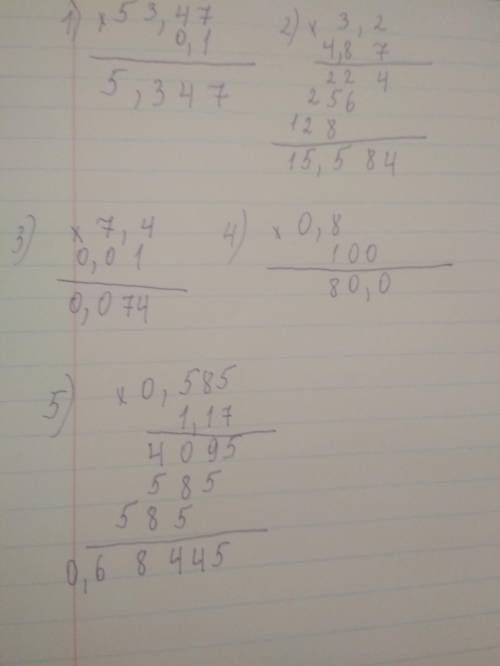 1) × 53,47
0,1
5,347
2) × 3,2
4,87
224
256
128
15,584
3) × 7,4
0,01
0,074
4) × 0,8
100
80,0
5) × 0,585
1,17
4095
585
585
0,68445